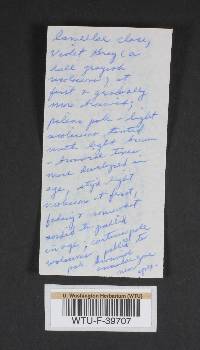 lamellae close,
Violet Gray (a
dull grayish
violaceus) at
first & gradually
more brownish;
pileus pale - light
avellaneus, tinted
with light brown
- brownish tones
more developed in
age, stipe light
violaceus at first,
fading & somewhat
sordid to pallid
in age; cortina pale
violaceus, pallid to
pale brownish
U. Washington Herbarium (WTU)
WTU-F-39707